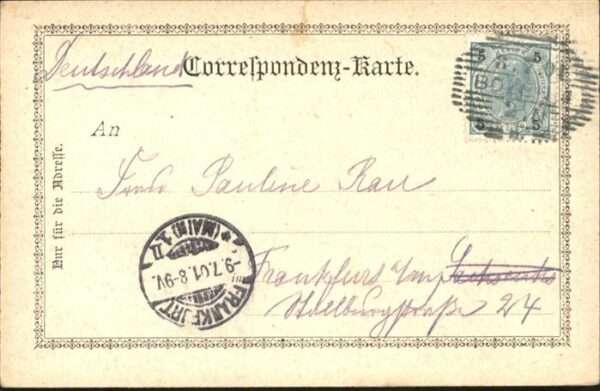 Deutschland
Correspondenz-Karte.
5 5
8
BO
5 5
An
Nur für die Adresse.
Frau Pauline Rau
Frankfurt a/m
24
FRANKFURT
*(MAIN) 1. II
-9.7.01.8-9V.